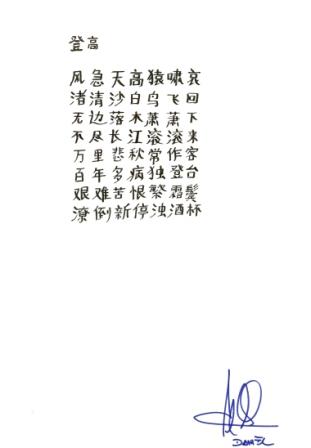 登高
风急天高猿啸哀
渚清沙白鸟飞回
无边落木萧萧下
不尽长江滚滚来
万里悲秋常作客
百年多病独登台
艰难苦恨繁霜鬓
潦倒新停浊酒杯
DANIEL